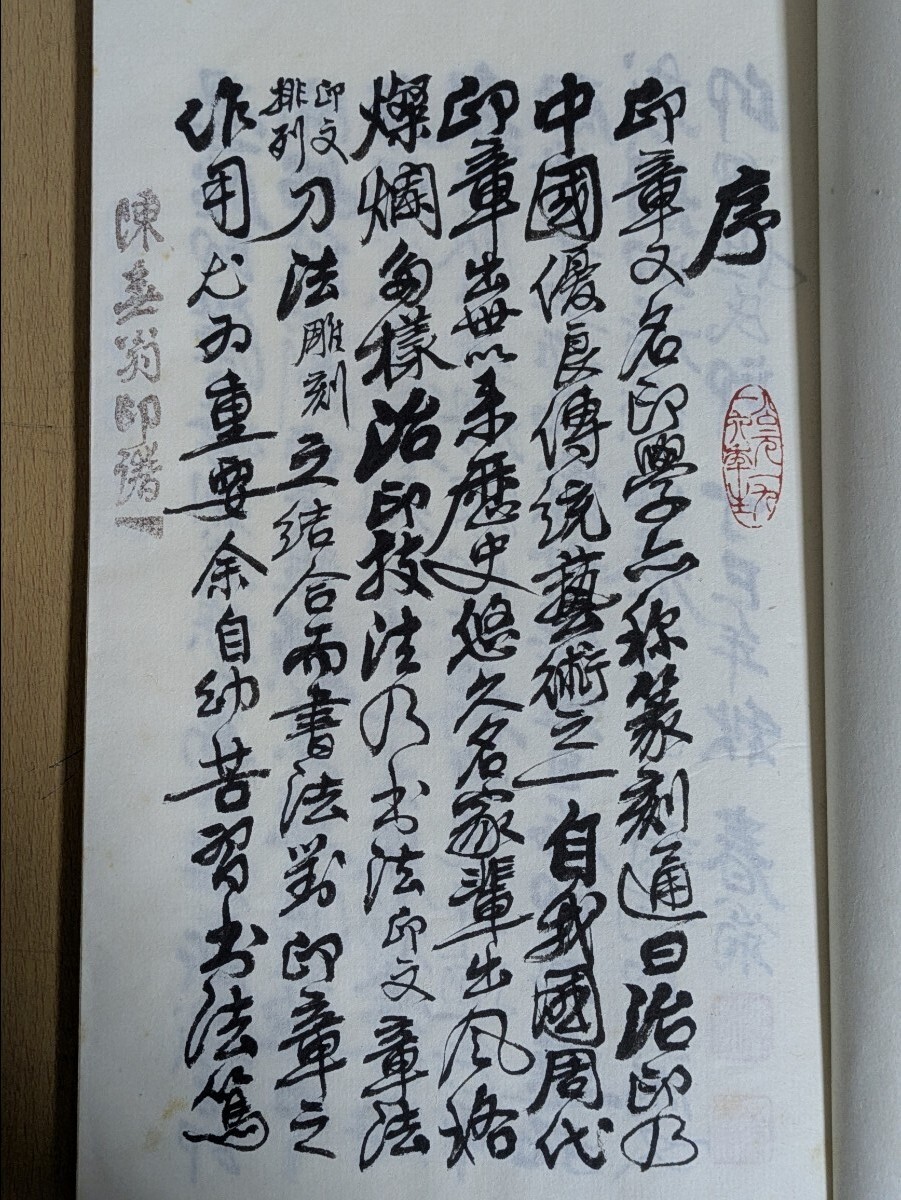 序
印章又名印學亦稱篆刻通曰治印乃
中國優良傳統藝術之一自我國周代
印章出世以来歷史悠久名家輩出风格
燦爛多樣治印技法乃书法印文章法
印文排列刀法雕刻之结合而書法對印章之
作用尤为重要余自幼苦習书法篤
陳 翁印譜一